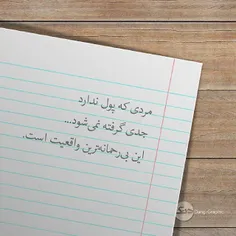 مردی که پول ندارد
جدی گرفته نمی‌شود...
این بی‌رحمانه‌ترین واقعیت است.